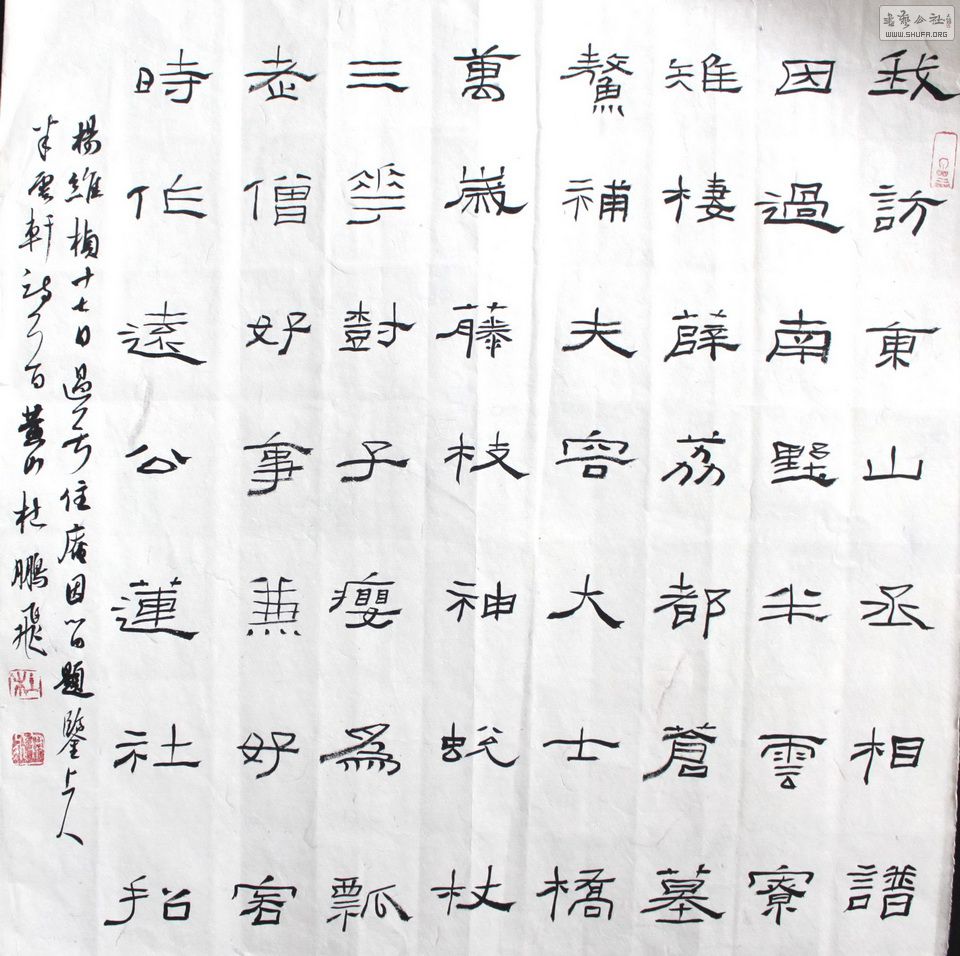 書藝公社
WWW.SHUFA.ORG
我訪東山丞相譜
因過南野半雲寮
雉棲薜荔都蒼墓
鰲補夫容大士橋
萬歲藤枝神蛻杖
三華對子癭為瓢
老僧好事兼好客
時作遠公蓮社招
楊維楨十七日過住庵因留題鑒上人
半雲軒詩一首黃山杜鵬飛
杜